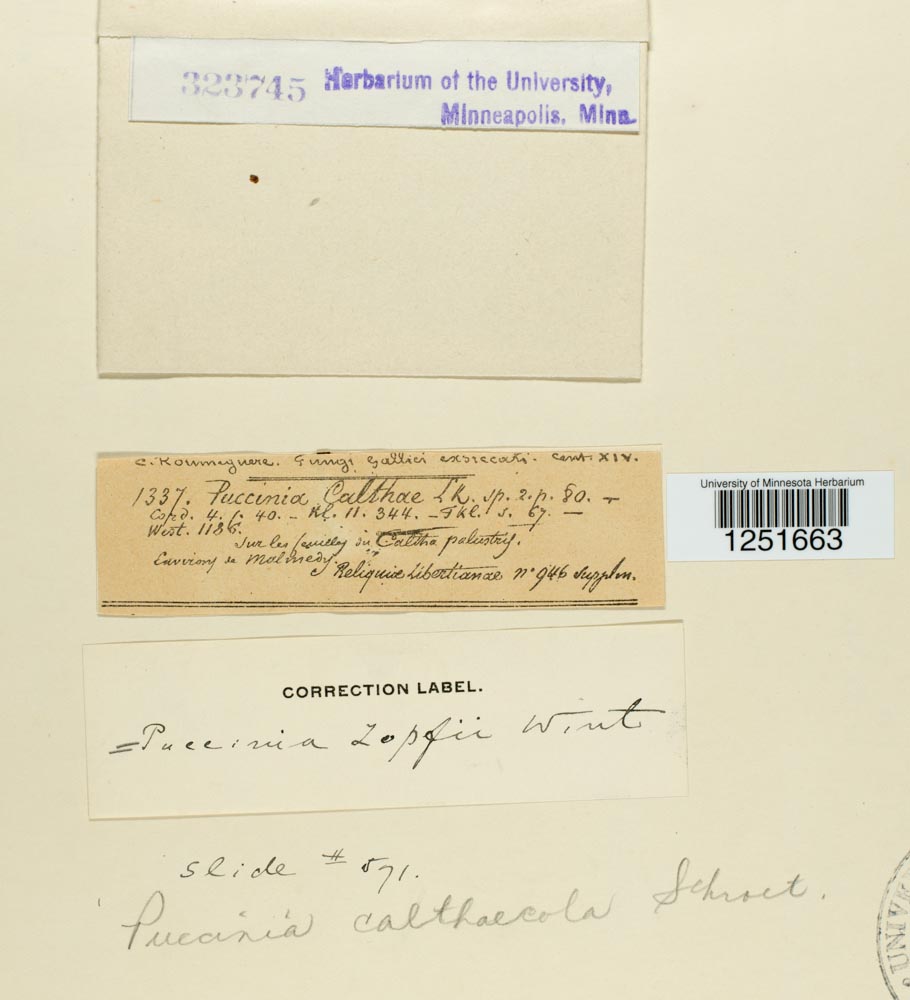 323745 Herbarium of the University,
Minneapolis, Minn.
C. Roumeguere. Fungi Gallici exsiccati. Cent. XIV.
1337. Puccinia Calthae Lk. sp. 2. p. 80. —
Cord. 4. f. 40. — Kl. 11. 344. — Fkl. s. 67. —
West. 1186.
Sur les feuilles du Caltha palustris.
Environs de Malmedy.
Reliquiae Libertianae n° 946 Supplm.
University of Minnesota Herbarium
1251663
CORRECTION LABEL.
= Puccinia Zopfii Wint
slide # 571.
Puccinia calthaecola Schroet.
UNIV